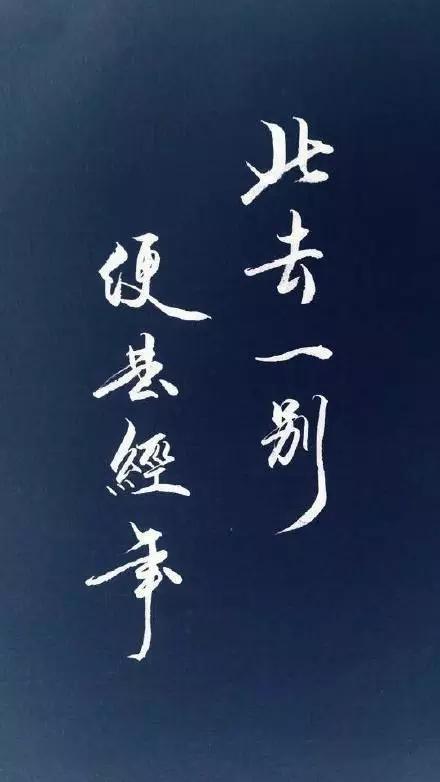 此去一别
便是經年